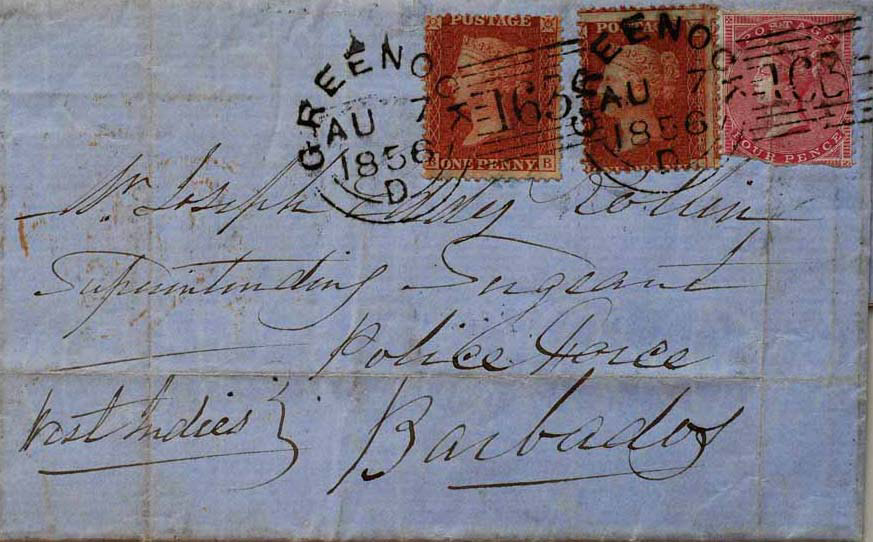 POSTAGE
ONE PENNY B
GREENOCK
AU 7
1856
D
163
POSTAGE
GREENOCK
AU 7
1856
D
163
POSTAGE
FOUR PENCE
Mr Joseph Rollin
Superintending Sergeant
Police Force
West Indies
Barbados